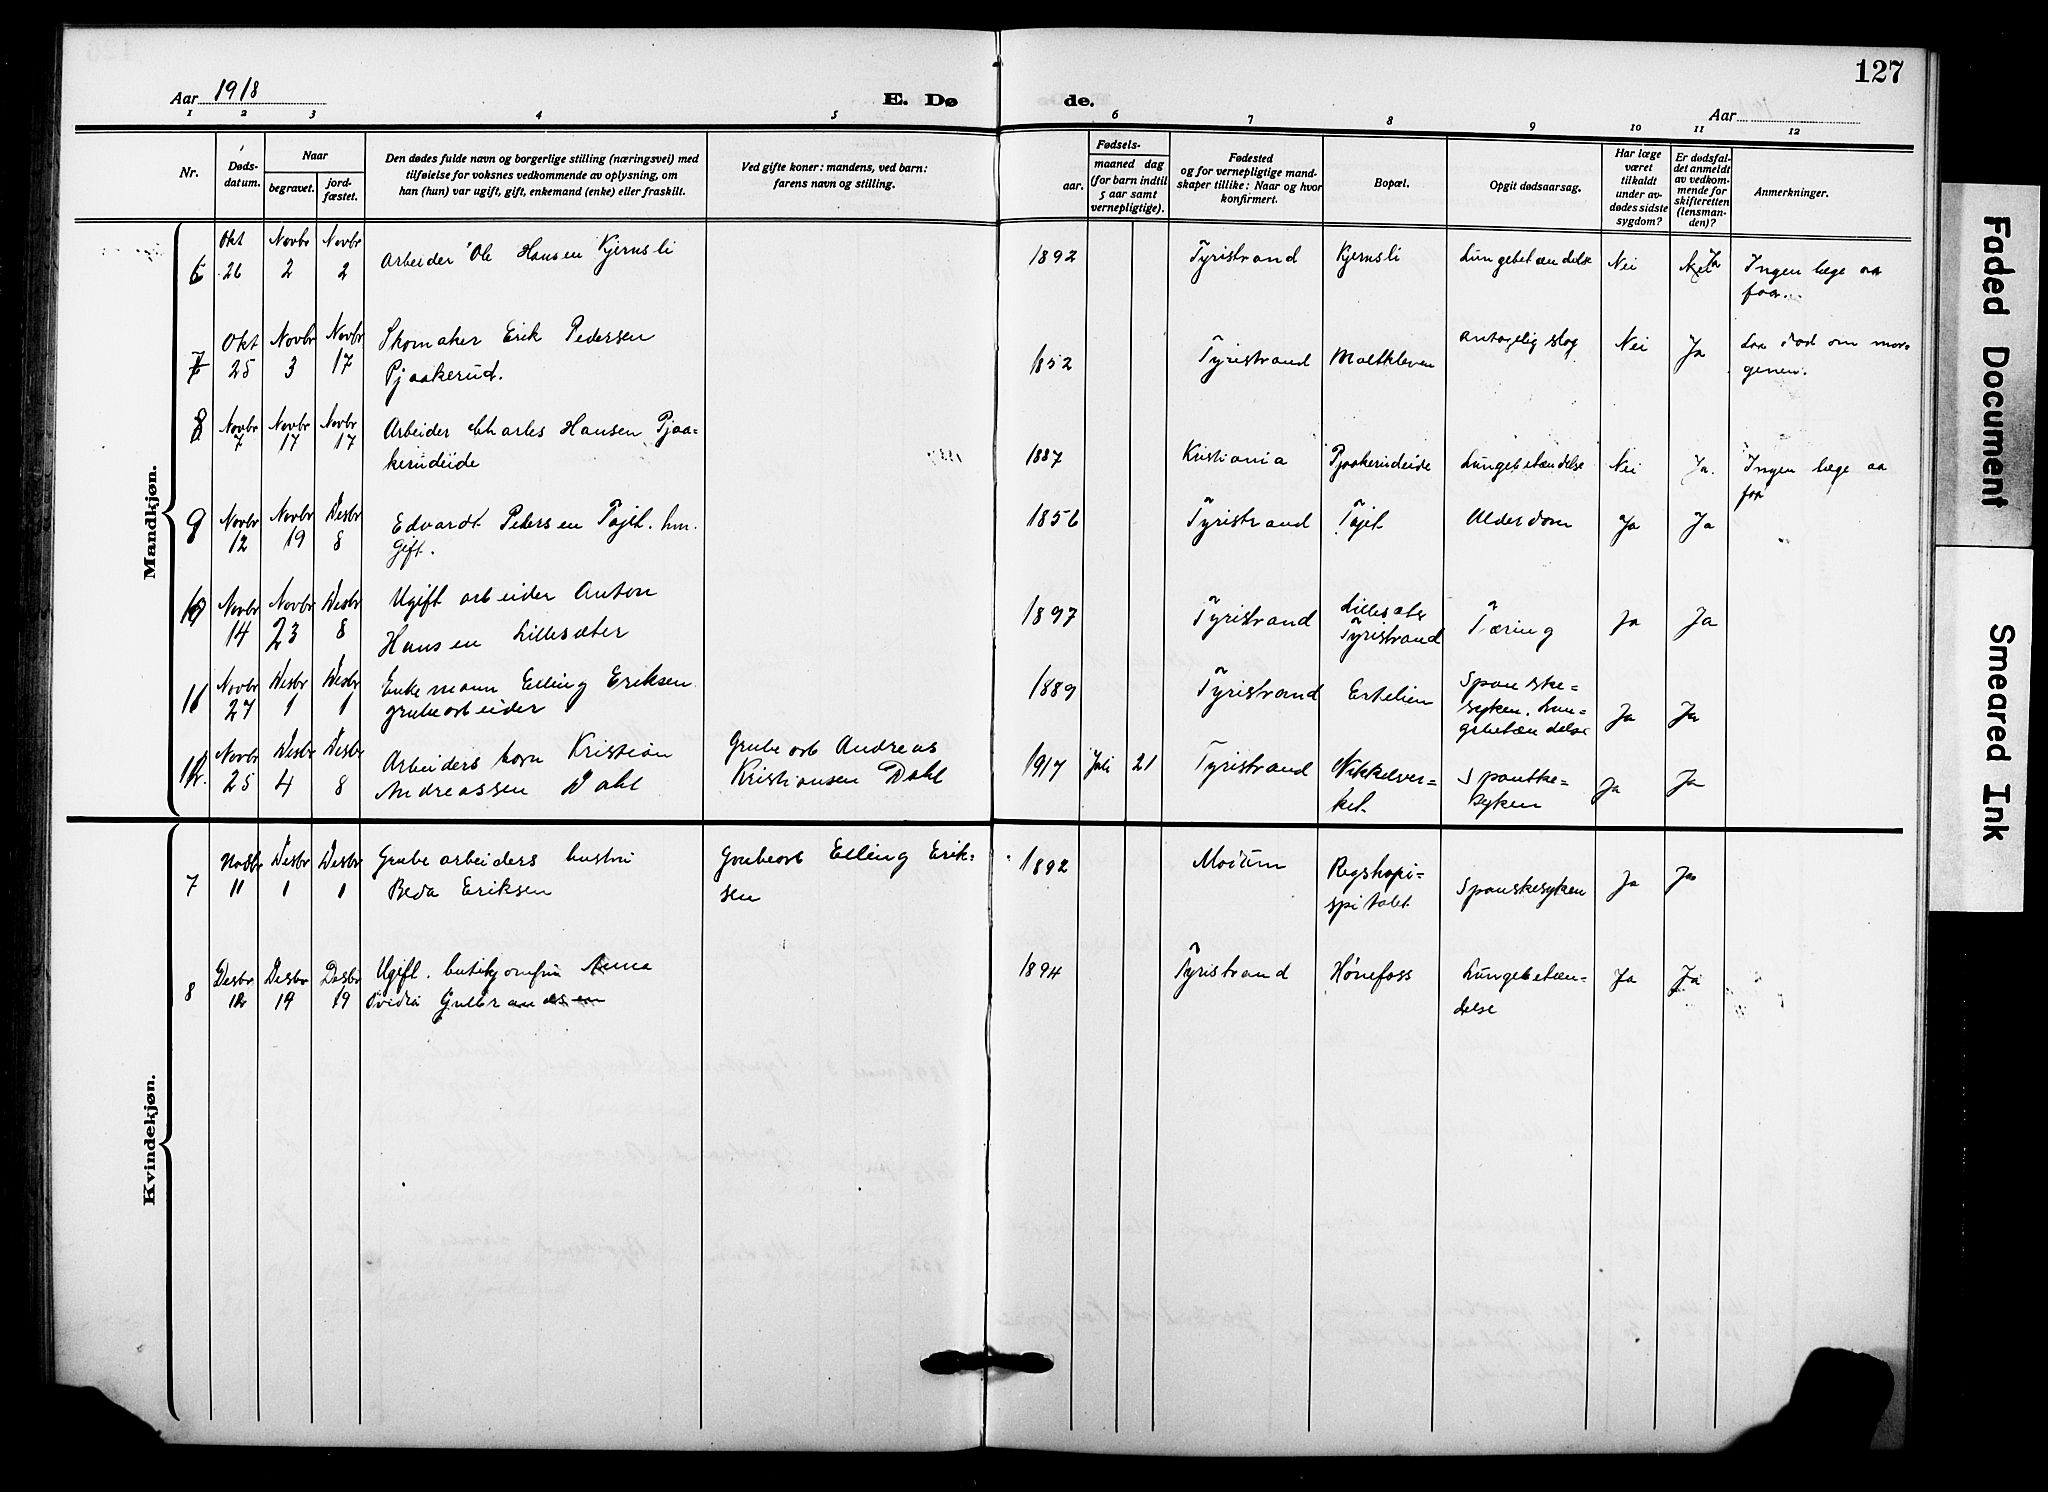 127
Aar 1918
E. Dø
de.
Aar
1 2 3 4 5 6 7 8 9 10 11 12
Nr.
Døds-
datum.
Naar
begravet.
jord-
fæstet.
Den dødes fulde navn og borgerlige stilling (næringsvei) med
tilføielse for voksnes vedkommende av oplysning, om
han (hun) var ugift, gift, enkemand (enke) eller fraskilt.
Ved gifte koner: mandens, ved barn:
farens navn og stilling.
Fødsels-
aar.
maaned dag
(for barn indtil
5 aar samt
vernepligtige).
Fødested
og for vernepligtige mand-
skaper tillike: Naar og hvor
konfirmert.
Bopæl.
Opgit dødsaarsag.
Har læge
været
tilkaldt
under av-
dødes sidste
sygdom?
Er dødsfal-
det anmeldt
av vedkom-
mende for
skifteretten
(lensman-
den)?
Anmerkninger.
Mandkjøn.
6 Okt 26 Novbr 2 Novbr 2 Arbeider Ole Hansen Kjernsli 1892 Tyristrand Kjernsli Lungebetændelse Nei Nei Ja Ingen læge aa
faa.
7 Okt 25 Novbr 3 Novbr 17 Skomaker Erik Pedersen
Pjaakerud. 1852 Tyristrand Moltkleven antagelig slag Nei Ja Laa død om mor-
genen.
8 Novbr 7 Novbr 17 Novbr 17 Arbeider Charles Hansen Pjaa-
kerudeide 1887 Kristiania Pjaakerudeide Lungebetændelse Nei Ja. Ingen læge aa
faa
9 Novbr 12 Novbr 19 Desbr 8 Edvardt Petersen Tajet. hm.
Gift. 1856 Tyristrand Tajet Alderdom Ja Ja
10 Novbr 14 Novbr 23 Desbr 8 Ugift arbeider Anton
Hansen Lillesæter 1897 Tyristrand Lillesæter
Tyristrand Tæring Ja Ja
11 Novbr 27 Desbr 1 Desbr 1 Enkemann Elling Eriksen
grubearbeider 1889 Tyristrand Ertelien Spanske=
syken. Lun-
gebetændelse Ja Ja
Novbr 25 Desbr 4 Desbr 8 Arbeiders barn Kristian
Andreassen Dahl Grubearb Andreas
Kristiansen Dahl 1917 Juli 21 Tyristrand Nikkelver-
ket. Spanske-
syken Ja Ja
Kvindekjøn.
7 Novbr 11 Desbr 1 Desbr 1 Grubearbeiders hustru
Beda Eriksen Grubearb Elling Erik-
sen 1892 Modum Regshopi-
spitalet Spanskesyken Ja Ja
8 Desbr Desbr 19 Desbr 19 Ugift. butikjomfru Anna
Ovidia 1894 Tyristrand Hønefoss Lungebetæn-
delse Ja Ja
Faded Document
Smeared Ink